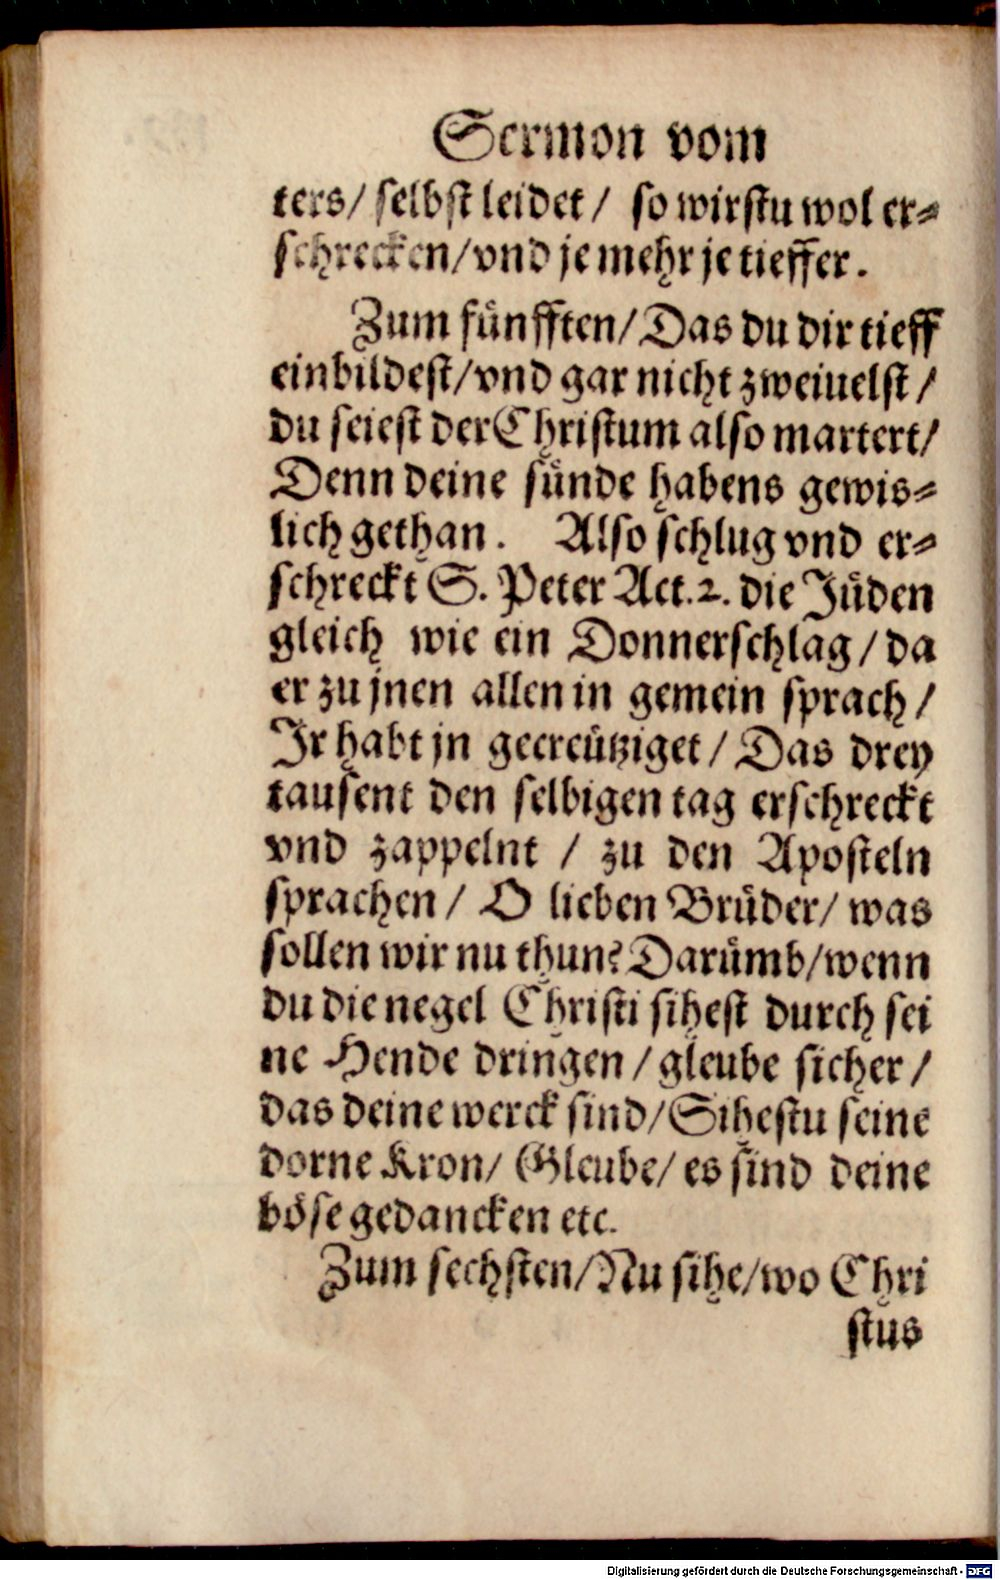 Sermon vom
ters/ selbst leidet/ so wirstu wol er⸗
schrecken/vnd je mehr je tieffer.
Zum fünfften/Das du dir tieff
einbildest/vnd gar nicht zweiuelst/
du seiest der Christum also martert/
Denn deine sünde habens gewis⸗
lich gethan. Also schlug vnd er⸗
schreckt S. Peter Act.2. die Jüden
gleich wie ein Donnerschlag/da
er zu jnen allen in gemein sprach/
Jr habt jn gecreütziget/ Das drey
tausent den selbigen tag erschreckt
vnd zappelnt / zu den Aposteln
sprachen/ O lieben Brüder/ was
sollen wir nu thun? Darümb/wenn
du die negel Christi sihest durch sei
ne Hende dringen/gleube sicher/
das deine werck sind/Sihestu seine
dorne Kron/ Gleube/ es sind deine
böse gedancken etc.
Zum sechsten/Nu sihe/wo Chri
stus
Digitalisierung gefördert durch die Deutsche Forschungsgemeinschaft - DFG